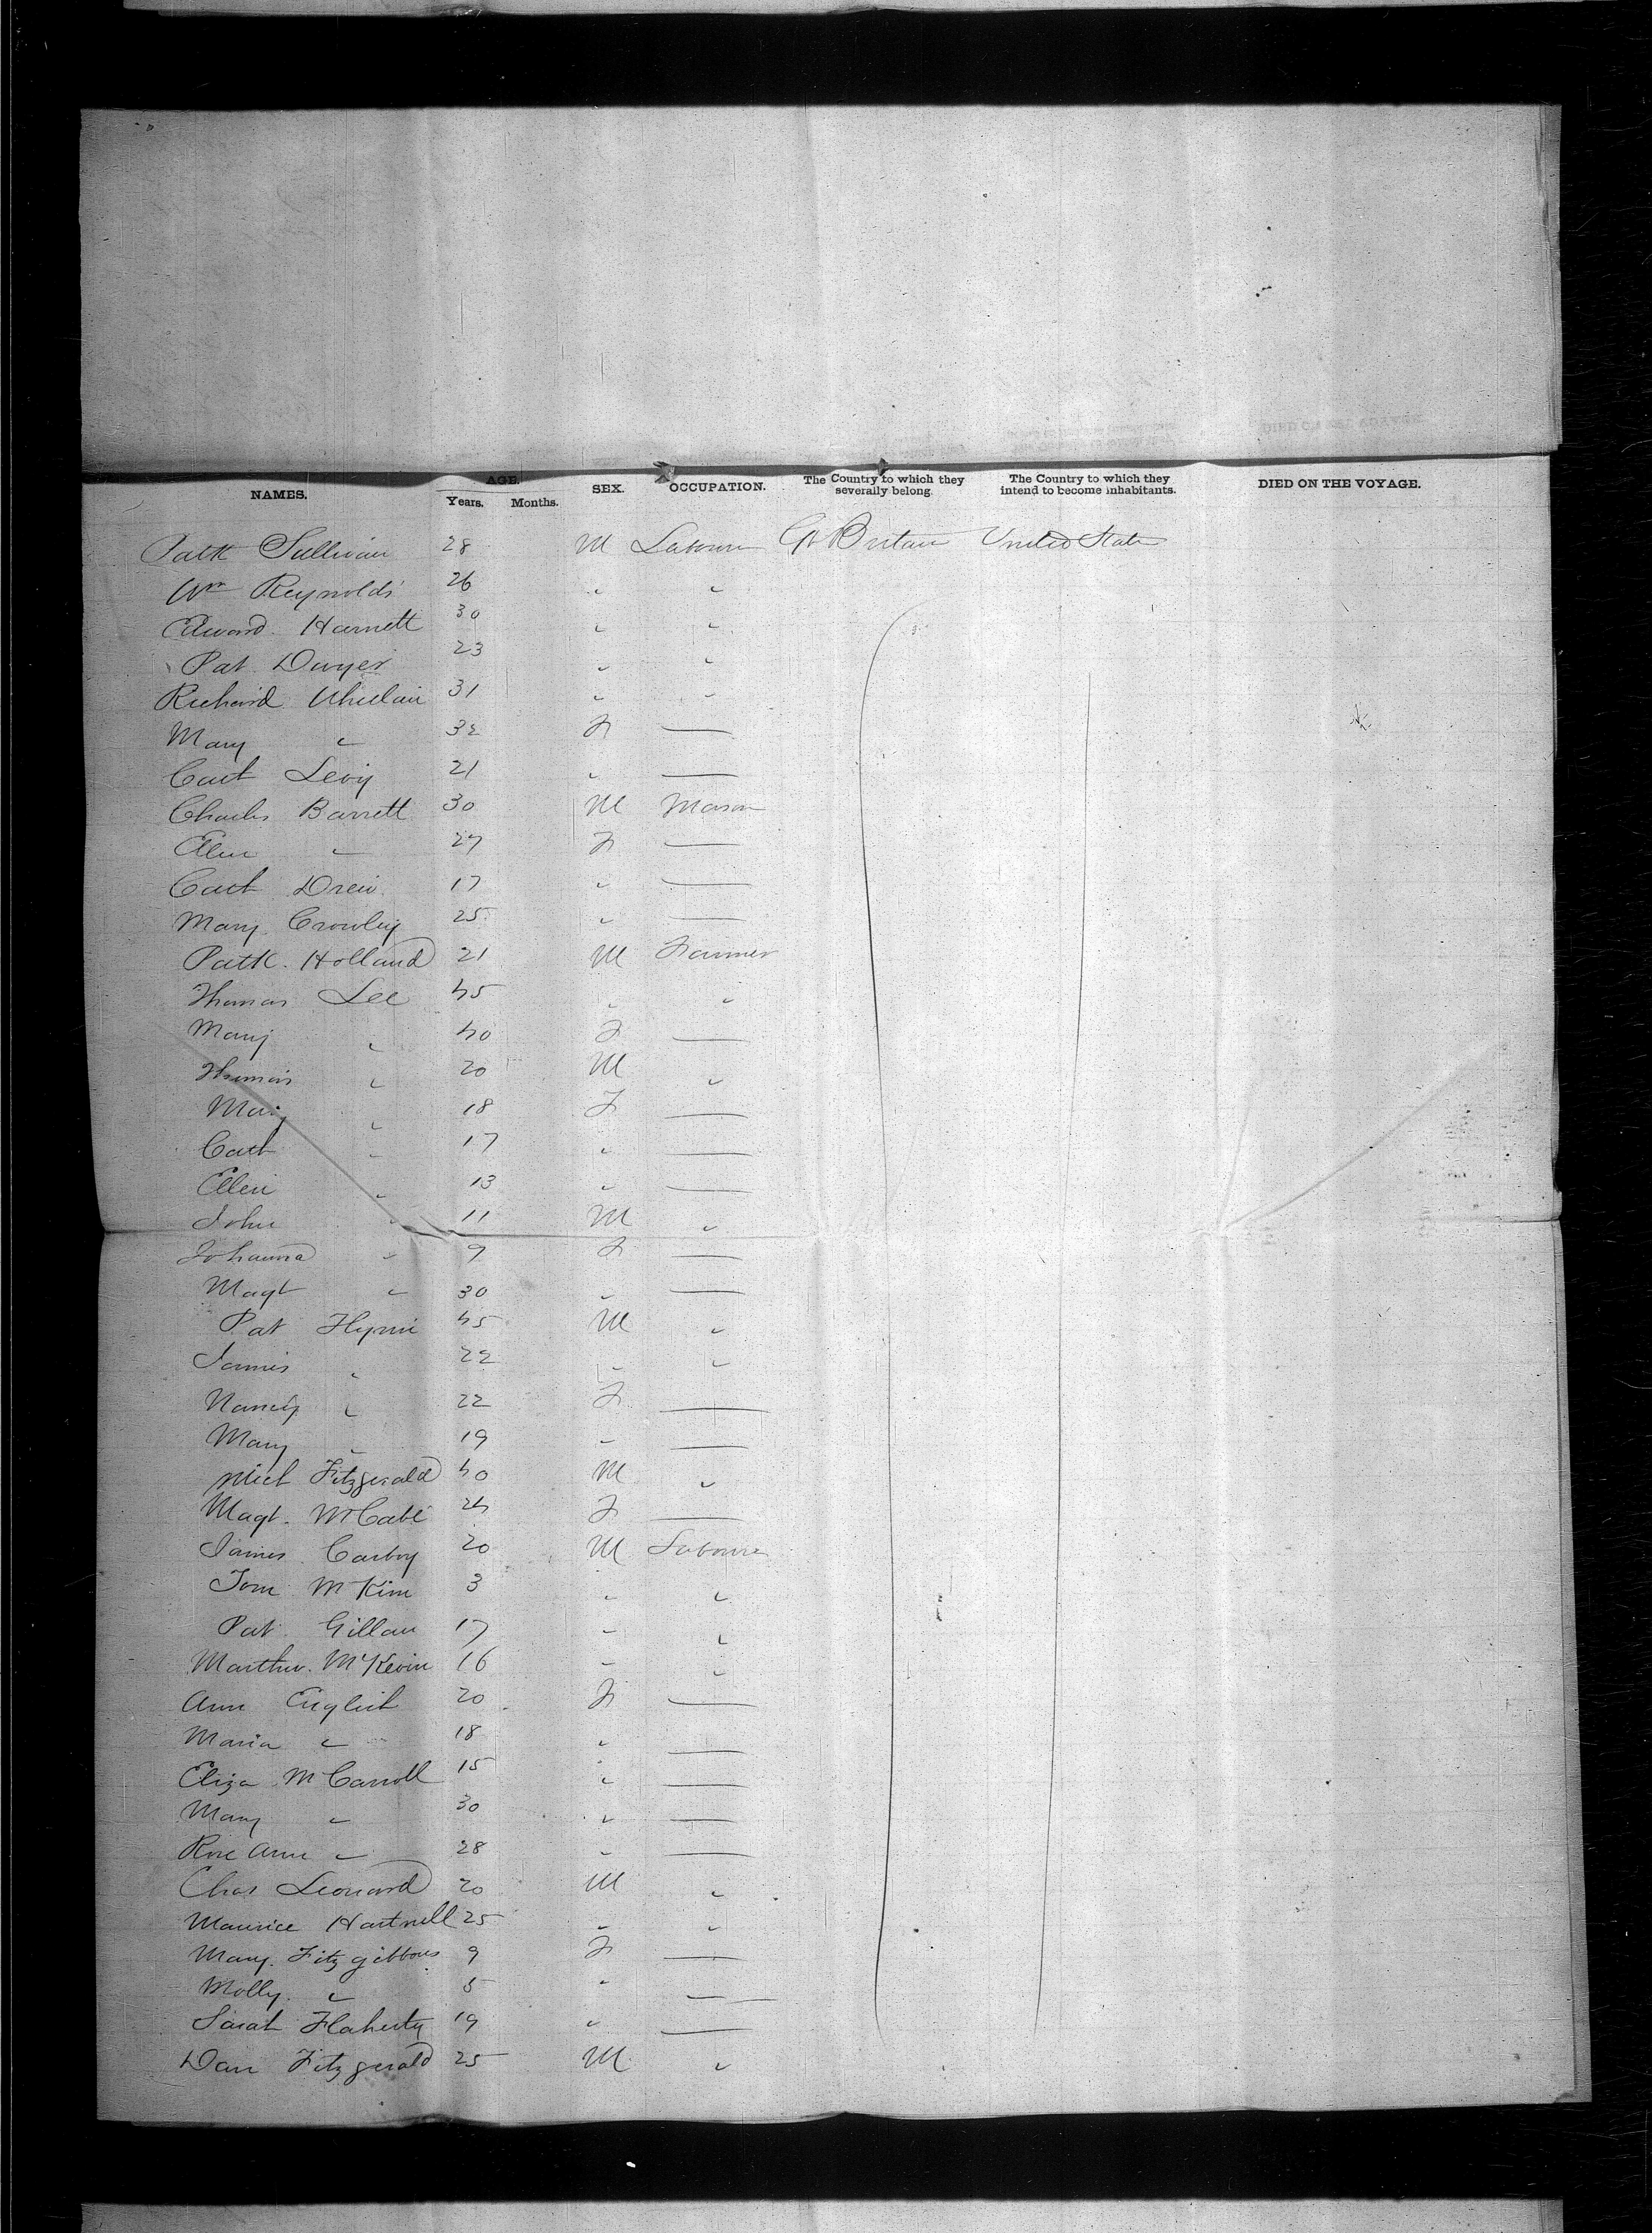 NAMES. AGE. Years. Months. SEX. OCCUPATION. The Country to which they severally belong. The Country to which they intend to become inhabitants. DIED ON THE VOYAGE.
Patk Sullivan 28 M Labourer Gt Britain United States
Wm Reynolds 26 " "
Edward Harnett 30 " "
Pat Dwyer 23 " "
Richard Whelan 31 " "
Mary " 32 F —
Cath Levy 21 " —
Charles Barrett 30 M Mason
Ellen " 27 F —
Cath Drew 17 " —
Mary Crowley 25 " —
Patk. Holland 21 M Farmer
Thomas Lee 45 " "
Mary " 40 F —
Thomas " 20 M "
Mary " 18 F —
Cath " 17 " —
Ellen " 13 " —
John " 11 M "
Johanna " 9 F —
Magt " 30 " —
Pat Flynn 45 M "
James " 22 " "
Nancy " 22 F —
Mary " 19 " —
Mich Fitzgerald 40 M "
Magt. McCabe 24 F —
James Carboy 20 M Labourer
Tom McKim 3 " "
Pat Gillan 17 " "
McKevin 16 " "
Ann English 20 F —
Maria " 18 " —
Eliza McCarroll 15 " —
Mary " 30 " —
Rose Ann " 28 " —
Chas Leonard 20 M "
Maurice Hartnell 25 " "
Mary Fitzgibbons 9 F —
Molly " 5 " —
Sarah Flaherty 19 " —
Dan Fitzgerald 25 M "